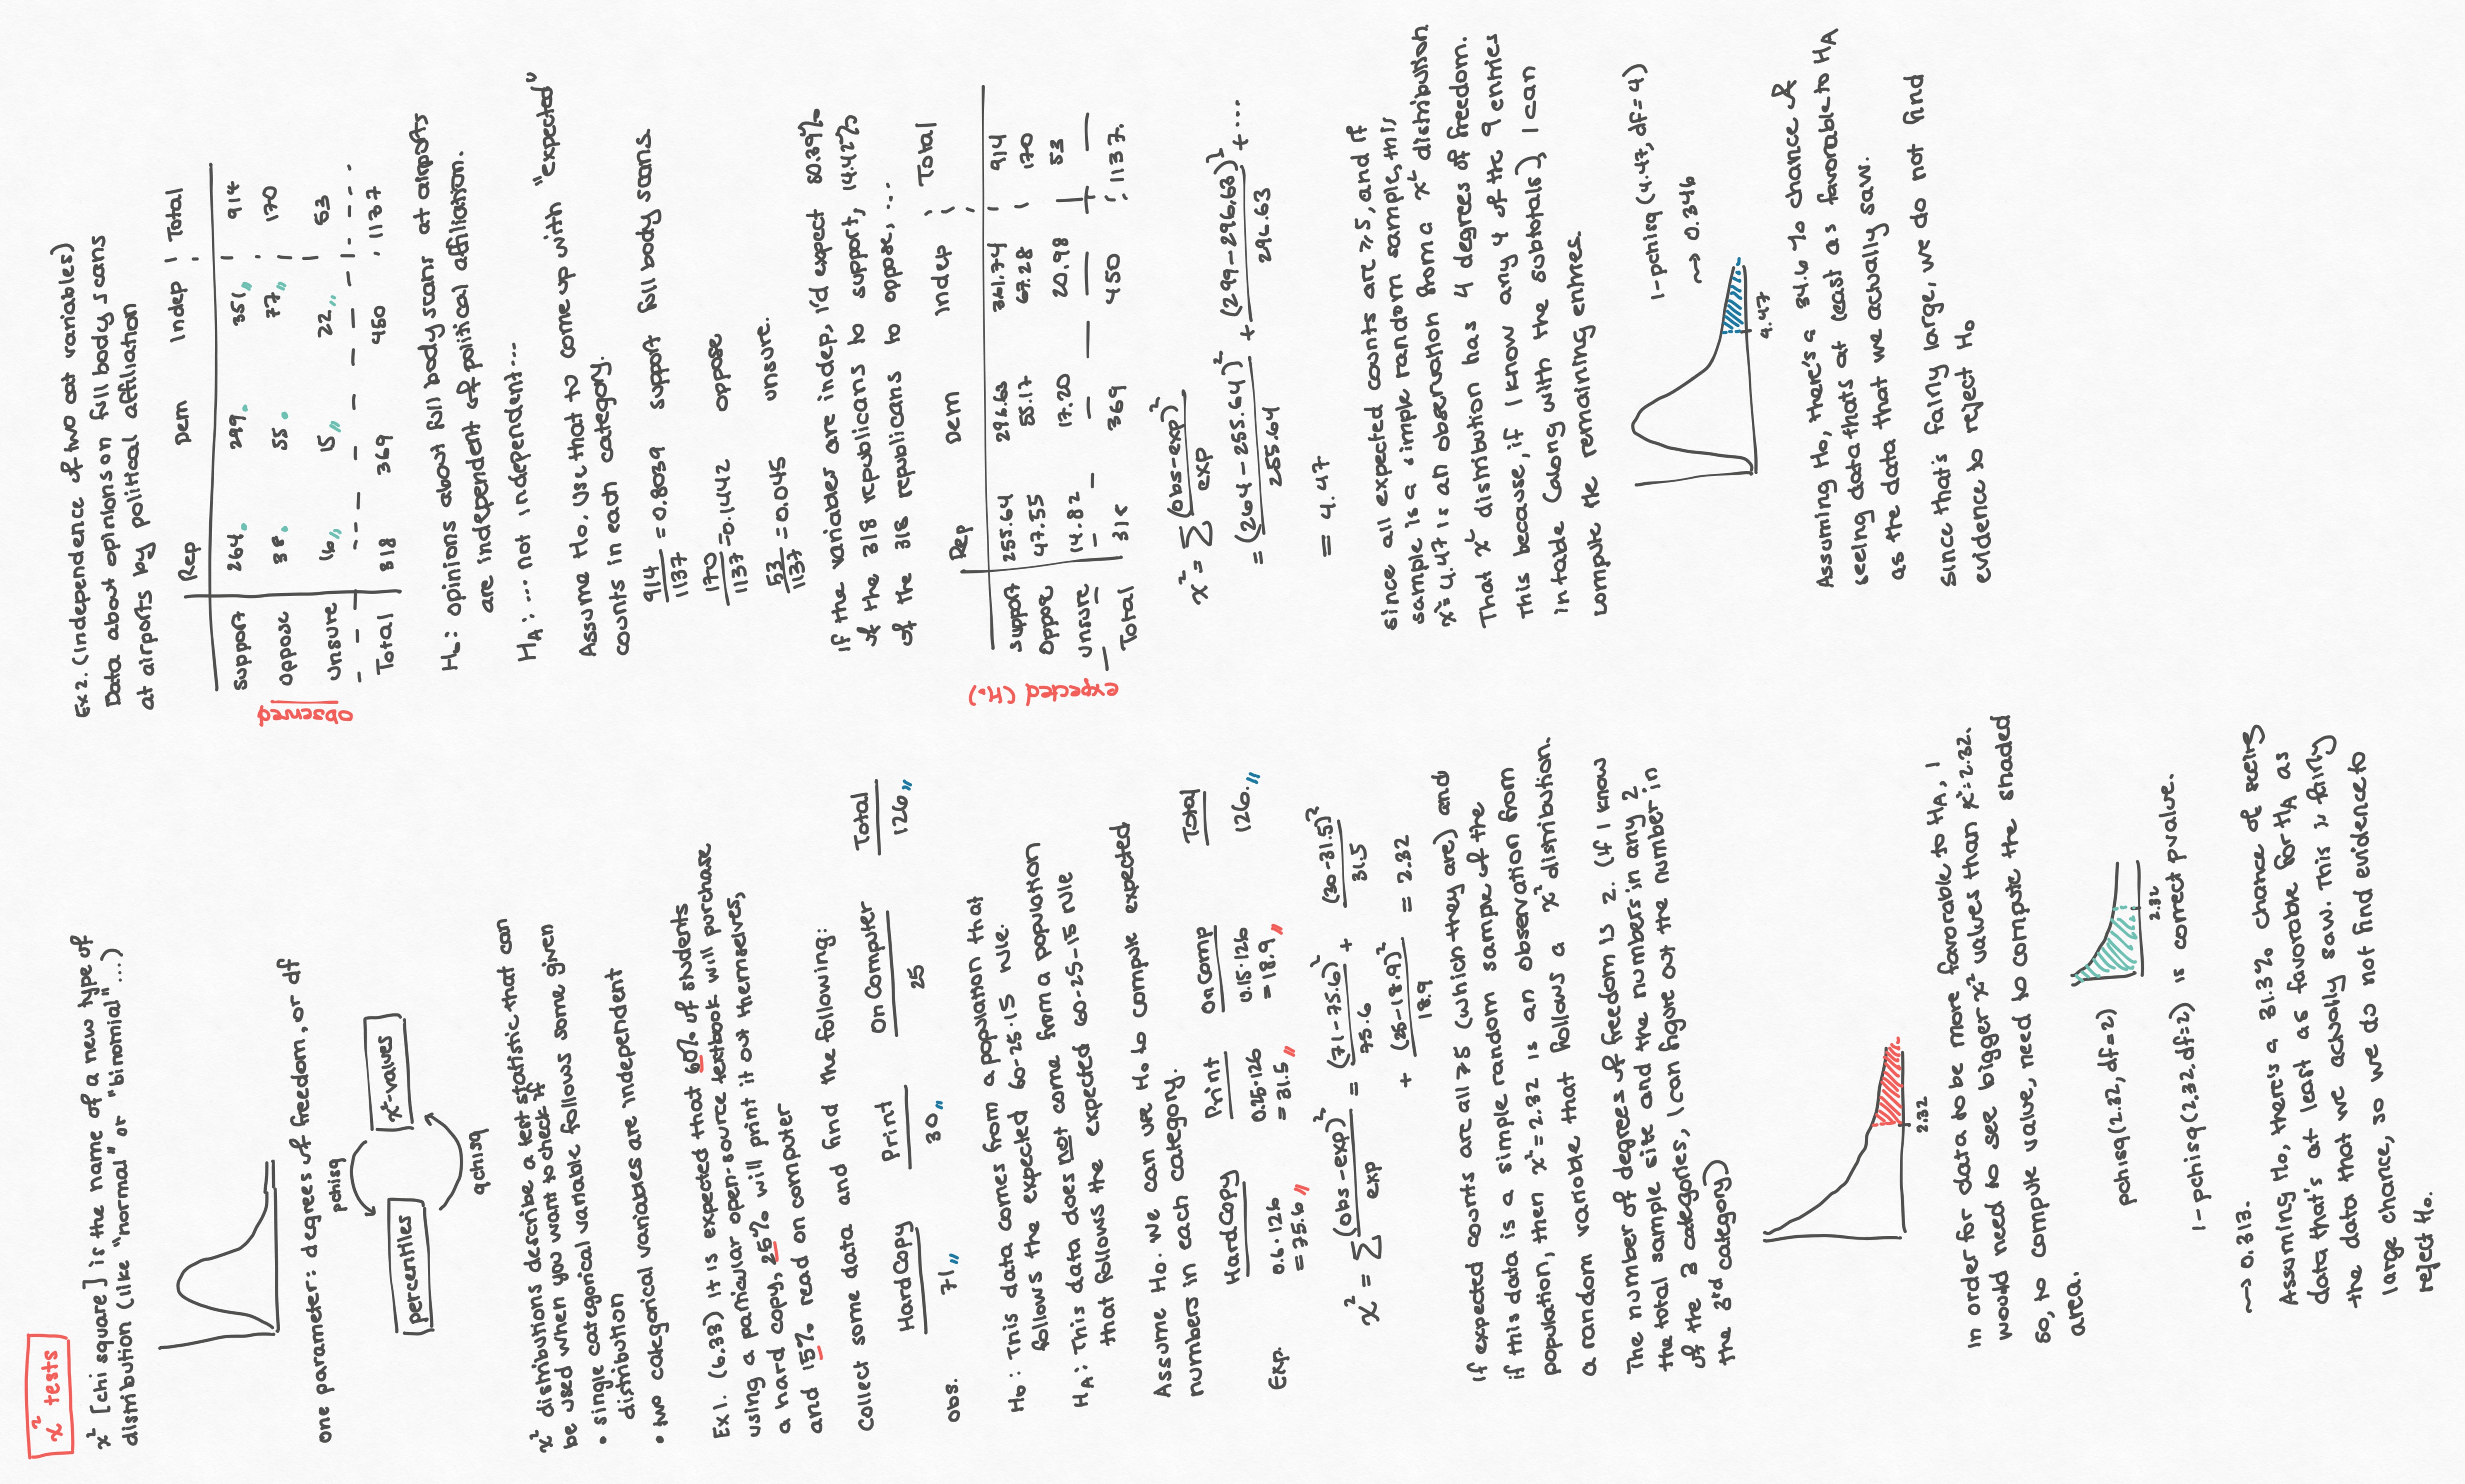 x² tests
x² [chi square] is the name of a new type of
distribution (like "normal" or "binomial"...)
one parameter: degrees of freedom, or df
pchisq
percentiles
x²-values
qchisq
x² distributions describe a test statistic that can
be used when you want to check if
• single categorical variable follows some given
distribution
• two categorical variables are independent
Ex 1. (6.33) It is expected that 60% of students
using a particular open-source textbook will purchase
a hard copy, 25% will print it out themselves,
and 15% read on computer
Collect some data and find the following:
Hard Copy Print On Computer Total
obs. 71 30 25 126
H₀: This data comes from a population that
follows the expected 60-25-15 rule.
H_A: This data does not come from a population
that follows the expected 60-25-15 rule
Assume H₀. We can use H₀ to compute expected
numbers in each category.
Hard Copy Print On Comp Total
Exp. 0.6·126 0.25·126 0.15·126 126.
= 75.6 = 31.5 = 18.9
x² = Σ (obs-exp)²/exp = (71-75.6)²/75.6 + (30-31.5)²/31.5
+ (25-18.9)²/18.9 = 2.32
If expected counts are all ≥5 (which they are) and
if this data is a simple random sample of the
population, then x²=2.32 is an observation from
a random variable that follows a x² distribution.
The number of degrees of freedom is 2. (If I know
the total sample site and the numbers in any 2
of the 3 categories, I can figure out the number in
the 3rd category)
2.32
In order for data to be more favorable to H_A, I
would need to see bigger x² values than x²=2.32.
So, to compute value, need to compute the shaded
area.
pchisq(2.32, df=2)
2.32
1-pchisq(2.32, df=2) is correct pvalue.
⇝ 0.313.
Assuming H₀, there's a 31.3% chance of seeing
data that's at least as favorable for H_A as
the data that we actually saw. This is fairly
large chance, so we do not find evidence to
reject H₀.
Ex 2. (Independence of two cat variables)
Data about opinions on full body scans
at airports by political affiliation
observed
Rep Dem Indep Total
Support 264 299 351 914
Oppose 38 55 77 170
Unsure 16 15 22 53
Total 318 369 450 1137
H₀: opinions about full body scans at airports
are independent of political affiliation.
H_A: ... not independent...
Assume H₀. Use that to come up with "expected"
counts in each category.
914/1137 = 0.8039 support full body scans
170/1137 = 0.1442 oppose
53/1137 = 0.045 unsure.
If the variables are indep, I'd expect 80.39%
of the 318 republicans to support, 14.42%
of the 318 republicans to oppose, ...
expected (H₀)
Rep Dem Indep Total
Support 255.64 296.63 361.74 914
Oppose 47.55 55.17 67.28 170
Unsure 14.82 17.20 20.98 53
Total 318 369 450 1137.
x² = Σ (obs-exp)²/exp
= (264-255.64)²/255.64 + (299-296.63)²/296.63 + ...
= 4.47
since all expected counts are ≥5, and if
sample is a simple random sample, this
x²=4.47 is an observation from a x² distribution
That x² distribution has 4 degrees of freedom.
This because, if I know any 4 of the 9 entries
in table (along with the subtotals), I can
compute the remaining entries.
1-pchisq(4.47, df=4)
⇝ 0.346
4.47
Assuming H₀, there's a 34.6% chance of
seeing data thats at least as favorable to H_A
as the data that we actually saw.
since that's fairly large, we do not find
evidence to reject H₀